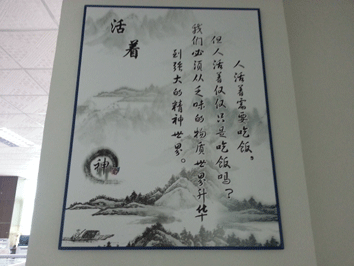 活着
人活着需要吃饭。
但人活着仅仅只是吃饭吗？
我们必须从乏味的物质世界升华
到强大的精神世界。
神